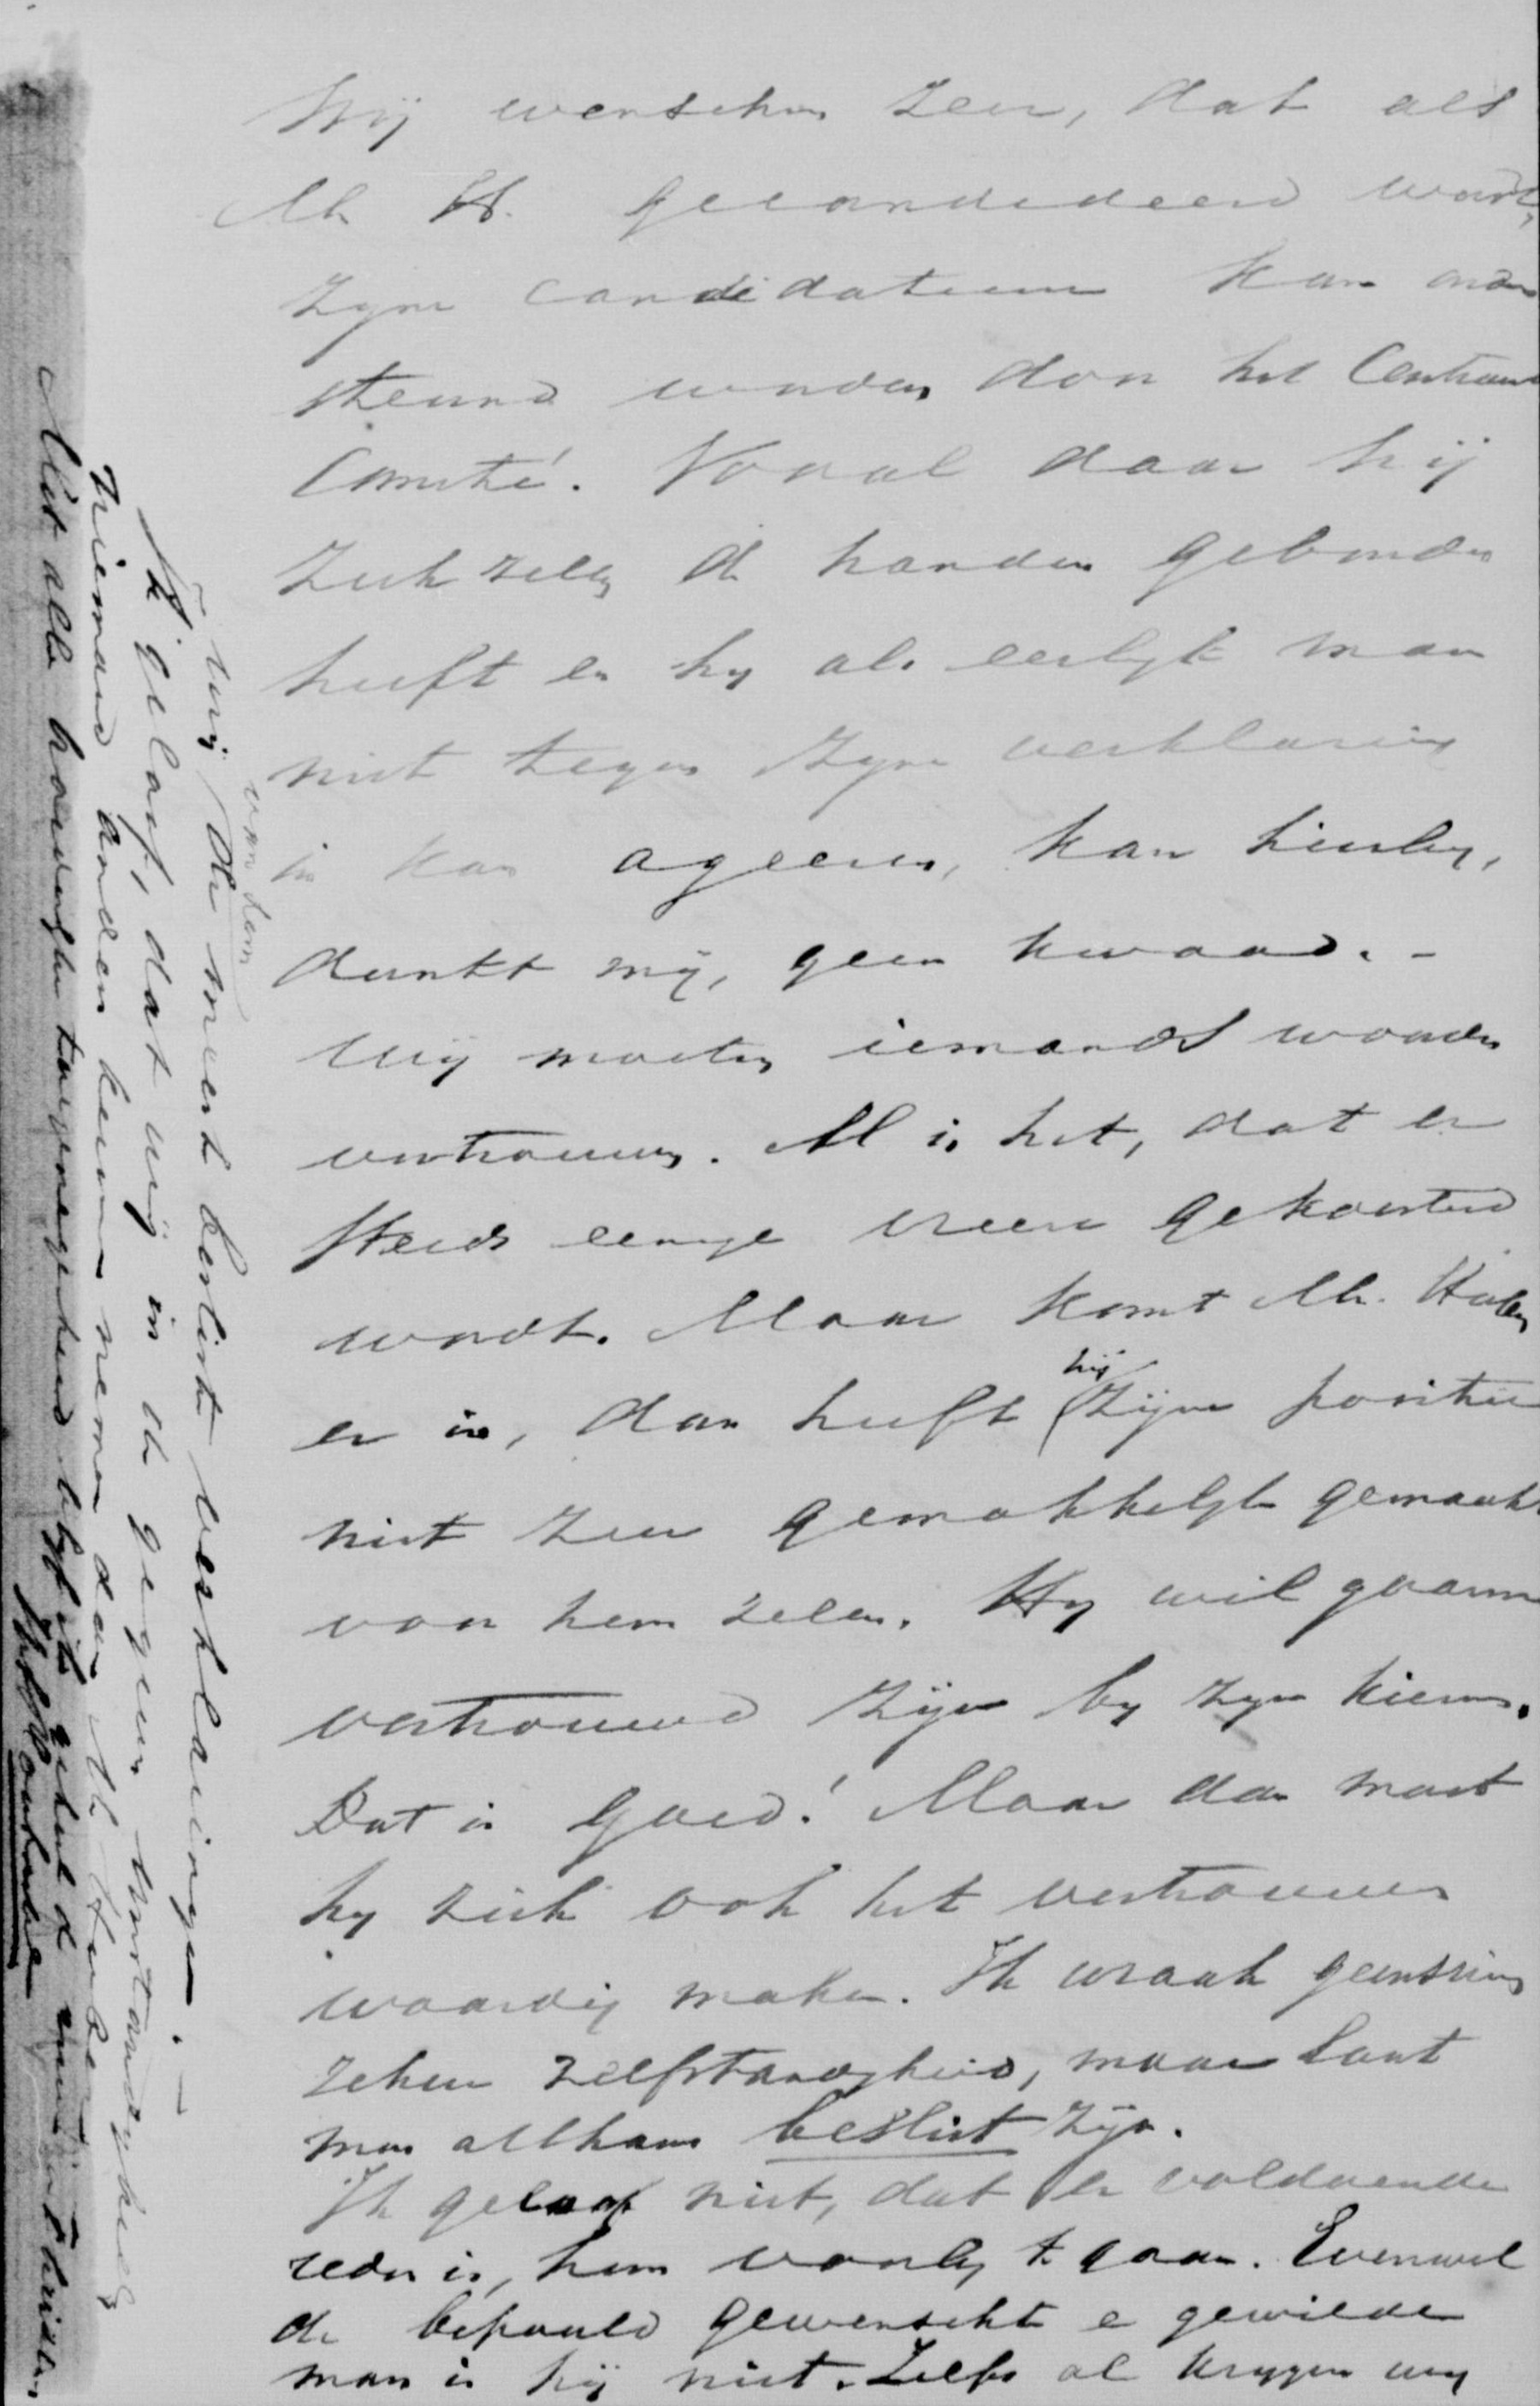 Wij wenschen zeer, dat als
Mr H. gecandideerd wordt,
zyne candidatuur kan onder
steund worden door het Centraal
Comité. Vooral daar hij
zich zelf de handen gebonden
heeft en hy als eerlyk man
niet tegen zyne verklaring
in kan ageeren, kan hierby,
dunkt mij, geen kwaad. -
Wij moeten iemands woorden
vertrouwen. Al is het, dat er
steeds eenige vrees gekoesterd
wordt. Maar komt Mr.
er in, dan heeft hij zijne positie
niet zeer gemakkelyk gemaakt
voor hem zelven. Hy wil gaarne
vertrouwd zijn by zyne kiezers.
Dat is goed! Maar dan moet
hy zich ook het vertrouwen
waardig maken. Ik wraak geenszins
zekere zelfstandigheid, maar laat
men althans beslist zijn.
Ik geloof niet, dat er voldoende
reden is, hem voorby te gaan. Evenwel
de bepaald gewenschte en gewilde
man is hij niet. Zelfs al krygen wy
- wij van hem de meest besliste verklaringen. -
Ik geloof, dat wij in de gegeven omstandigheden
niemand anders kunnen nemen dan
Met alle hoogachting toegenegenheid blyf ik geheel d uwe in Christus